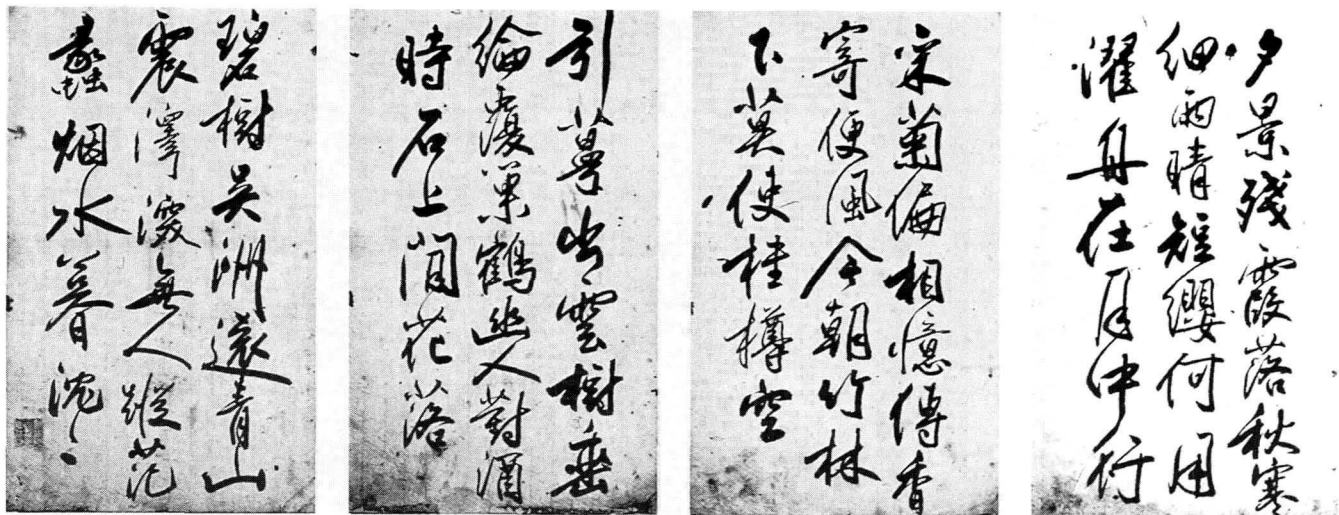 夕景殘霞落秋寒
細雨晴短纓何用
濯舟在月中行
采菊偏相憶傳香
寄便風今朝竹林
下莫使桂樽空
引蔓出雲樹垂
綸覆巢鶴幽人對酒
時石上閒花落
碧樹吳洲遠青山
震澤深無人蹤范
蠡烟水暮沈〻